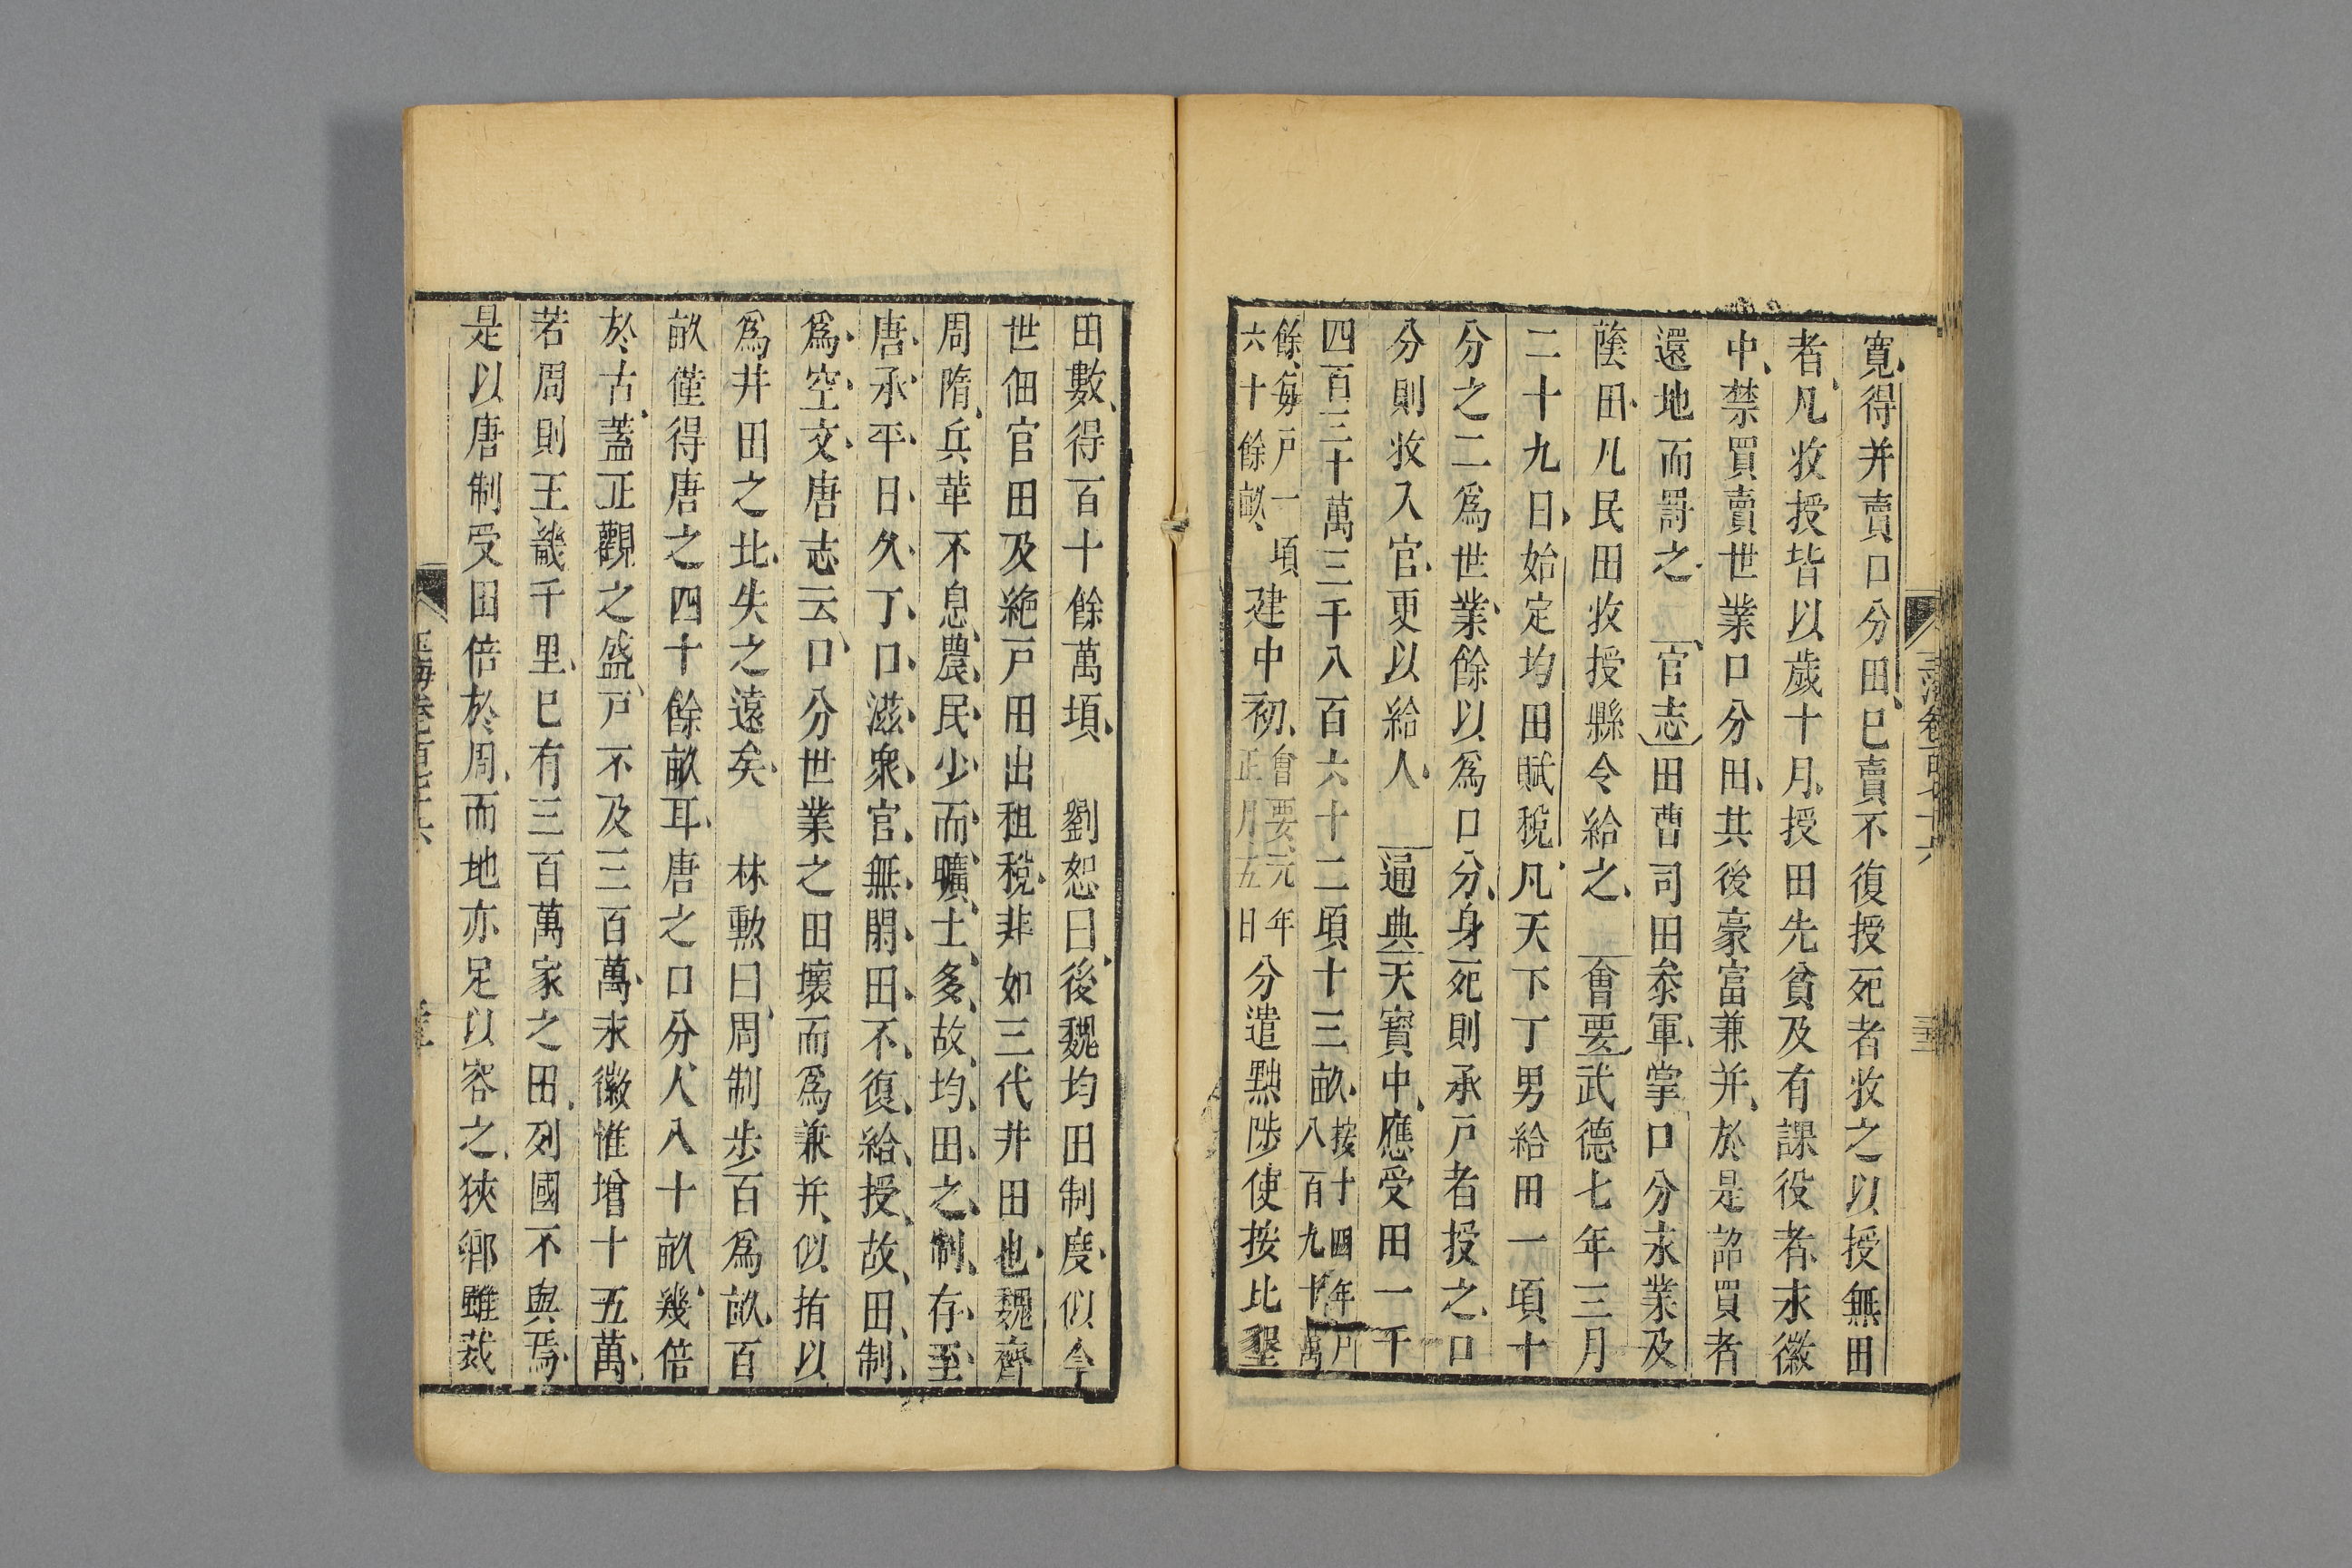 寛得并賣口分田巳賣不復授死者收之以授無田
者凡收授皆以歲十月授田先貧及有課役者永徽
中禁買賣世業口分田其後豪富兼并於是詔買者
還地而罰之 官志田曹司田叅軍掌口分永業及
蔭田凡民田收授縣令給之 會要武德七年三月
二十九日始定均田賦稅凡天下丁男給田一頃十
分之二爲世業餘以爲口分身死則承戸者授之口
分則收入官更以給人 通典天寶中應受田一千
四百三十萬三千八百六十二頃十三畝按十四年戸八百九十萬
餘每戸一頃六十餘畝建中初會要元年正月五日分遣黜陟使按比墾
田數得百十餘萬頃 劉恕曰後魏均田制度似今
世佃官田及絶戸田出租稅非如三代井田也魏齊
周隋兵革不息農民少而曠土多故均田之制存至
唐承平日久丁口滋衆官無閒田不復給授故田制
爲空文唐志云口分世業之田壞而爲兼并似指以
爲井田之比失之遠矣 林勲曰周制步百爲畝百
畝僅得唐之四十餘畝耳唐之口分人八十畝幾倍
於古蓋正觀之盛戸不及三百萬永徽惟增十五萬
若周則王畿千里巳有三百萬家之田列國不與焉
是以唐制受田倍於周而地亦足以容之狹鄉雖裁